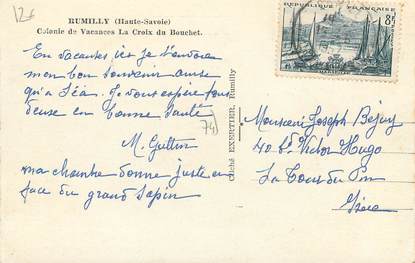 12€
RUMILLY (Haute-Savoie)
Colonie de Vacances La Croix du Bouchet.
En vacances ici je t'envoie
mon bon souvenir ainsi
qu'à Léa. Je vous espère tous
deux en bonne santé
M. Guttin
74
ma chambre donne juste en
face du grand sapin
Cliché EXERTIER, Rumilly
REPUBLIQUE FRANÇAISE
8F
MARSEILLE
Monsieur Joseph Béjuy
40 Bd Victor Hugo
La Tour du Pin
Isère